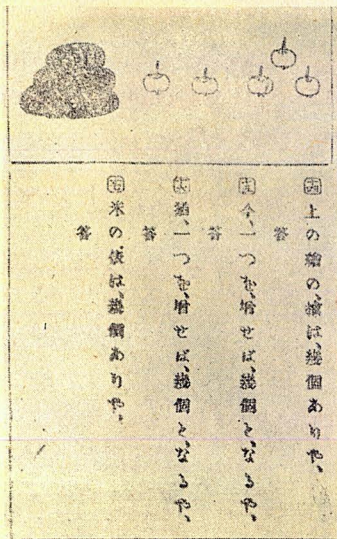 上の繪の、は、幾個ありや、
答
今、一つを、増せば、幾個と、なるや、
答
猶、一つを、増せば、幾個と、なるや、
答
米の、俵は、幾個ありや、
答